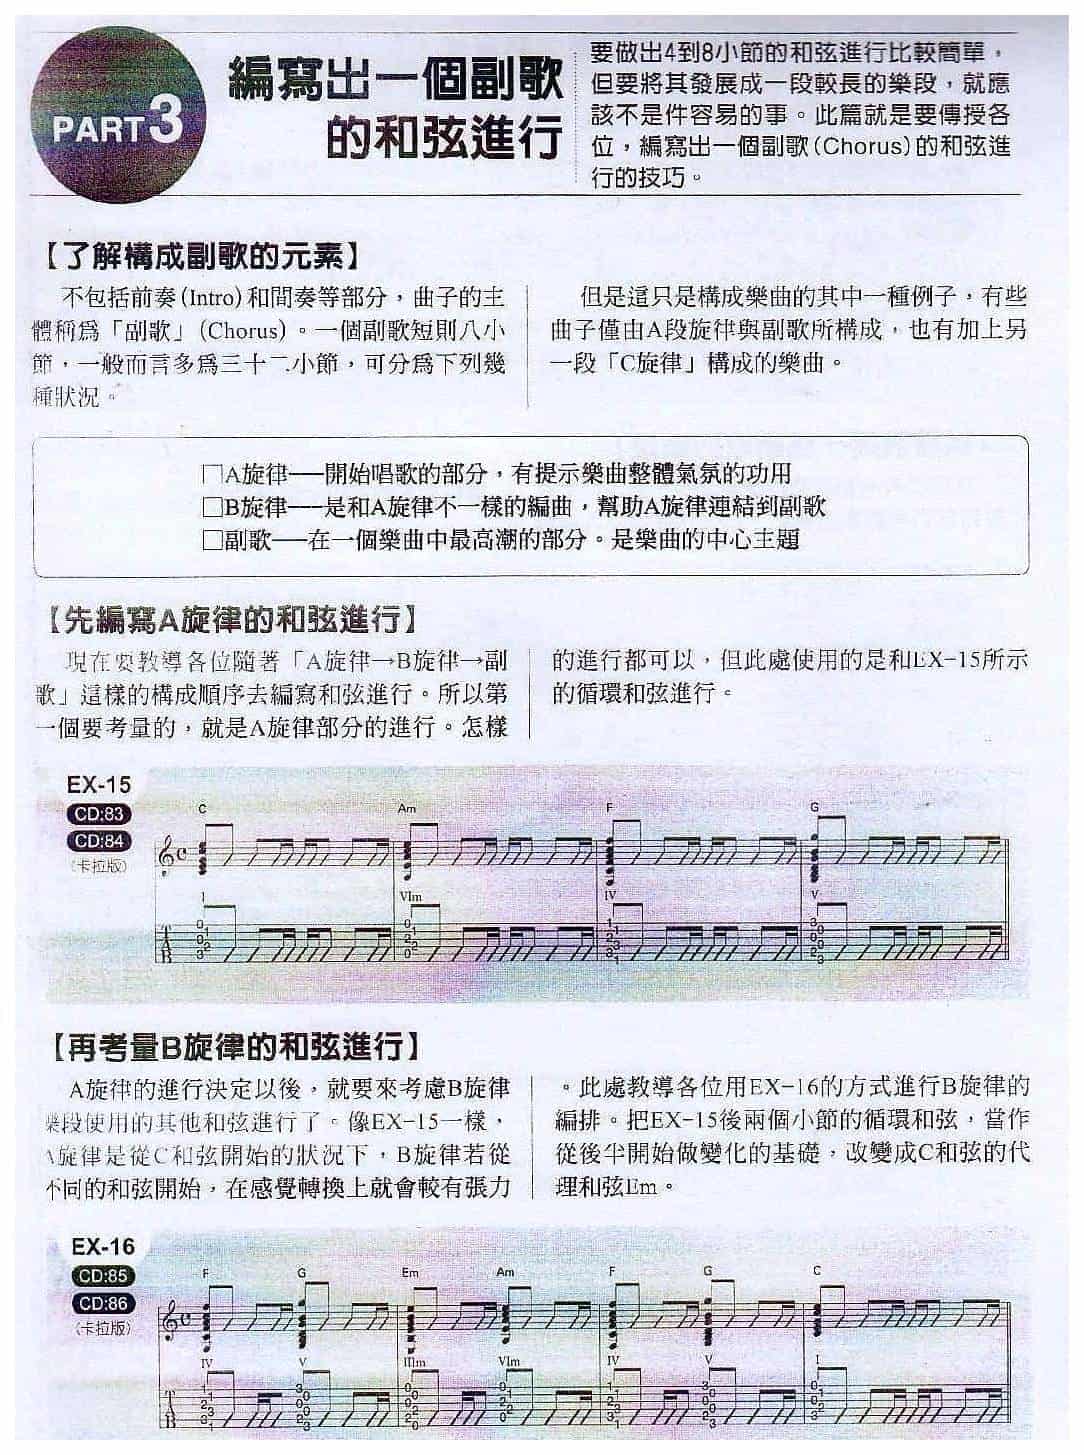 PART 3
編寫出一個副歌
的和弦進行
要做出4到8小節的和弦進行比較簡單，
但要將其發展成一段較長的樂段，就應
該不是件容易的事。此篇就是要傳授各
位，編寫出一個副歌(Chorus)的和弦進
行的技巧。
【了解構成副歌的元素】
不包括前奏(Intro)和間奏等部分，曲子的主
體稱為「副歌」(Chorus)。一個副歌短則八小
節，一般而言多為三十二小節，可分為下列幾
種狀況。
但是這只是構成樂曲的其中一種例子，有些
曲子僅由A段旋律與副歌所構成，也有加上另
一段「C旋律」構成的樂曲。
□A旋律──開始唱歌的部分，有提示樂曲整體氣氛的功用
□B旋律──是和A旋律不一樣的編曲，幫助A旋律連結到副歌
□副歌──在一個樂曲中最高潮的部分。是樂曲的中心主題
【先編寫A旋律的和弦進行】
現在要教導各位隨著「A旋律→B旋律→副
歌」這樣的構成順序去編寫和弦進行。所以第
一個要考量的，就是A旋律部分的進行。怎樣
的進行都可以，但此處使用的是和EX-15所示
的循環和弦進行。
EX-15
CD:83
CD:84
(卡拉版)
C Am F G
I VIm IV V
【再考量B旋律的和弦進行】
A旋律的進行決定以後，就要來考慮B旋律
樂段使用的其他和弦進行了。像EX-15一樣，
A旋律是從C和弦開始的狀況下，B旋律若從
不同的和弦開始，在感覺轉換上就會較有張力
。此處教導各位用EX-16的方式進行B旋律的
編排。把EX-15後兩個小節的循環和弦，當作
從後半開始做變化的基礎，改變成C和弦的代
理和弦Em。
EX-16
CD:85
CD:86
(卡拉版)
F G Em Am F G C
IV V IIIm VIm IV V I